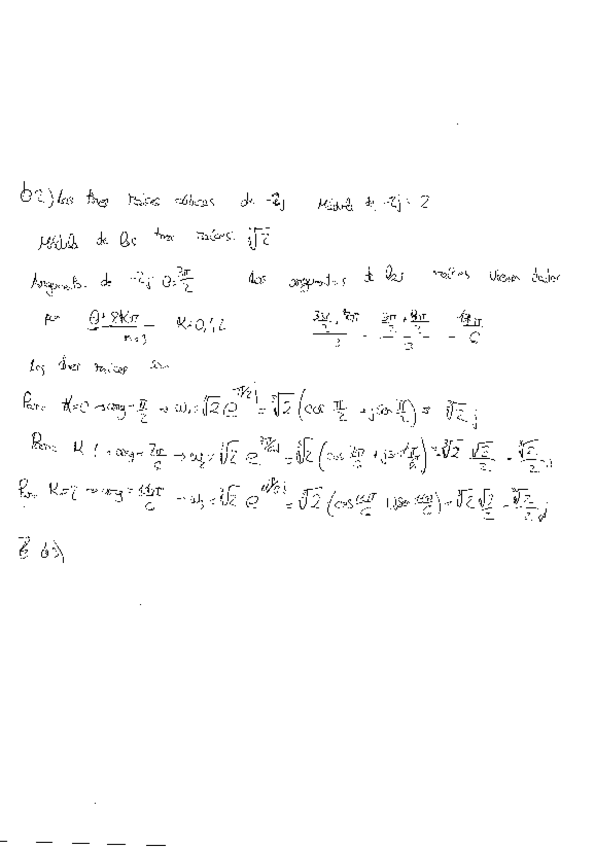 b2) Las tres raices cúbicas de -2j Módulo de -2j = 2
Módulo de las tres raices: ∛2
Argumento de -2j θ=3π/2 Los argumentos de las raices vienen dados
por (θ+2Kπ)/(n=3) K=0,1,2
Las tres raices son
Para K=0 → arg = π/2 → w₁ = ∛2 e^(π/2 j) = ∛2 (cos π/2 + j sen π/2) = ∛2 j
Para K=1 → arg = 7π/6 → w₂ = ∛2 e^(7π/6 j) = ∛2 (cos 7π/6 + j sen 7π/6) = -∛2 √3/2 - ∛2/2 j
Para K=2 → arg = 11π/6 → w₃ = ∛2 e^(11π/6 j) = ∛2 (cos 11π/6 + j sen 11π/6) = ∛2 √3/2 - ∛2/2 j
b3)